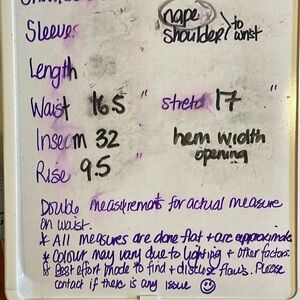 nape
Sleeves shoulder to wrist
Length
Waist 16.5 " stretch 17 "
Inseam 32 hem width
opening
Rise 9.5
Double measurements for actual measure
on waist.
* All measures are done flat + are approximate
* Colour may vary due to lighting + other factors
* Best effort made to find + discuss flaws. Please
contact if there is any issue ☺